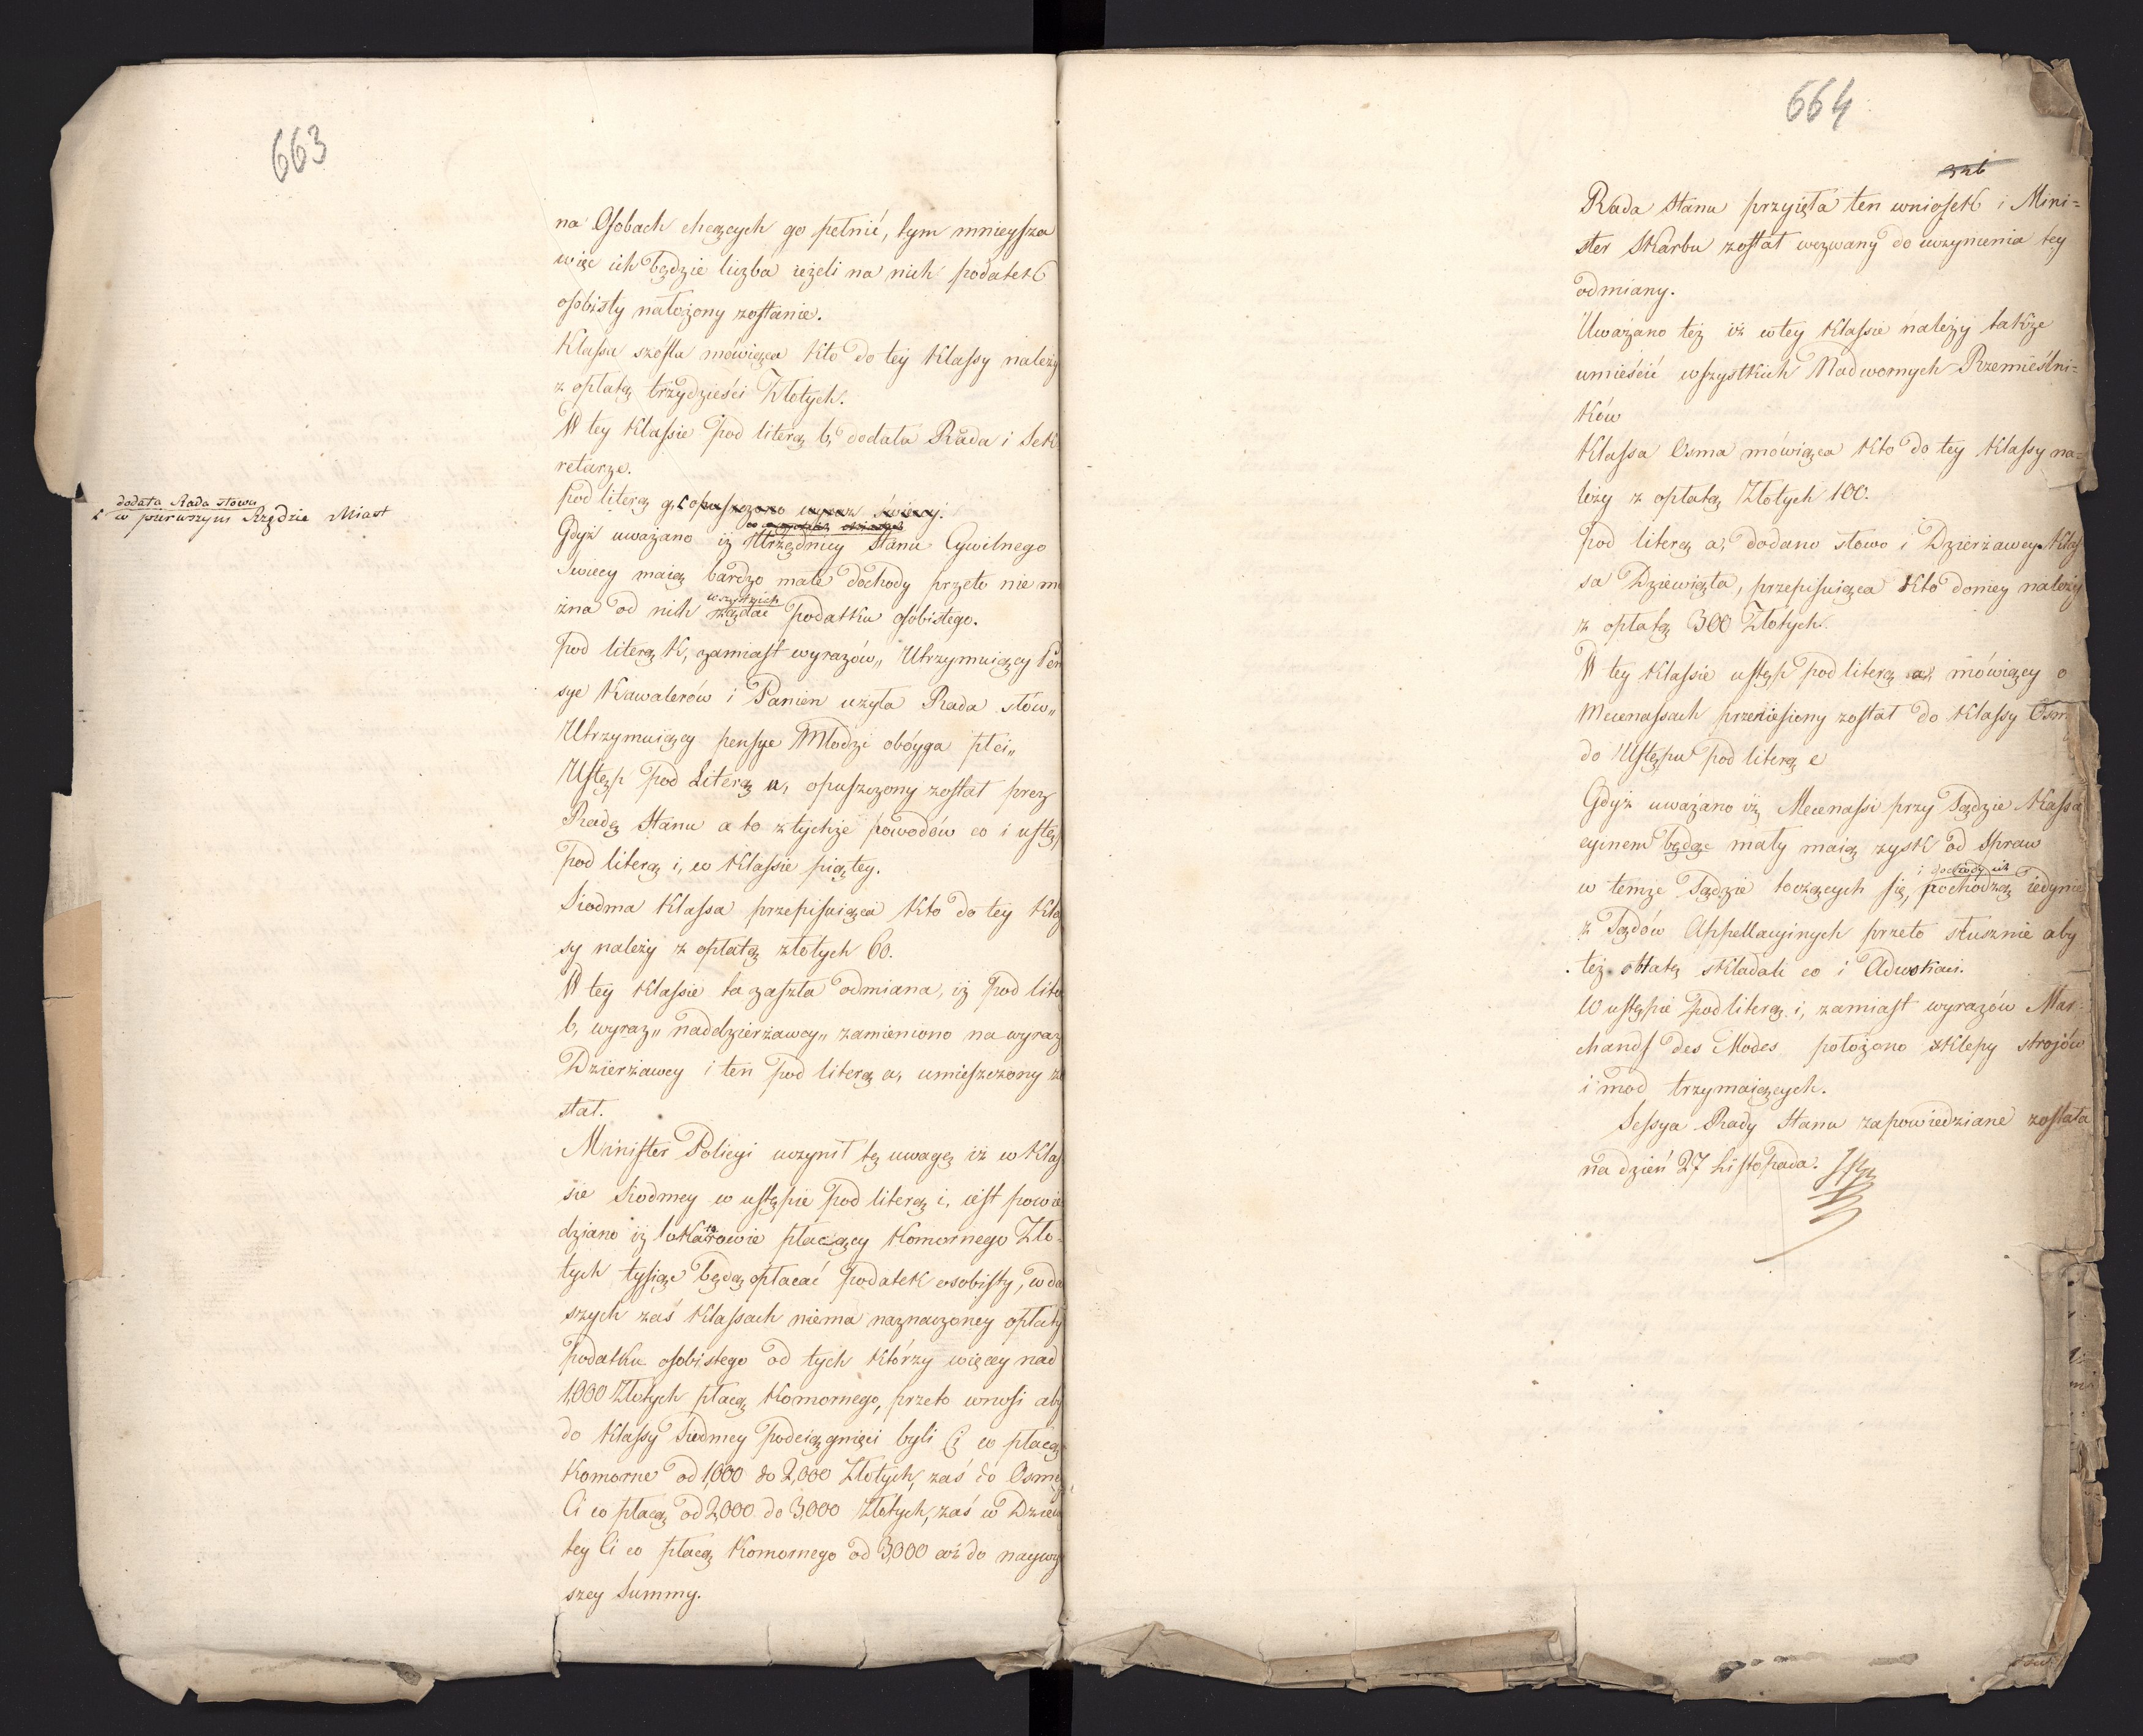 663
na Osobach chcących go pełnić, tym mnieysza
więc ich będzie liczba ieżeli na nich podatek
osobisty nałożony zostanie.
Klassa szósta mówiąca kto do tey Klassy należy
z opłatą trzydzieści Złotych.
W tey Klassie pod literą b, dodała Rada i Sek
retarze.
pod literą g, opuszczono wyraz świeccy.
dodała Rada słowa
w pierwszym Rzędzie Miast
Gdyż uważano iż Urzędnicy Stanu Cywilnego
świeccy maią bardzo małe dochody przeto nie mo
żna od nich wszystkich żądać podatku osobistego.
pod literą k, zamiast wyrazów „ Utrzymuiący Pen
sye Kawalerów i Panien użyła Rada słów „
Utrzymuiący pensye Młodzi obóyga płci „
Ustęp pod Literą u, opuszczony został prez
Radę Stanu a to z tychże powodów co i ustęp
pod literą i, w Klassie piątey.
Siodma Klassa przepisuiąca kto do tey Klas
sy należy z opłatą złotych 60.
W tey Klassie ta zaszła odmiana, iż pod lite
b, wyraz „ naddzierżawcy „ zamieniono na wyraz
Dzierżawcy i ten pod literą a, umieszczony zo
stał.
Minister Policyi uczynił tę uwagę iż w Klas
sie Siodmey w ustępie pod literą i, iest powie
dziano iż lokatorowie płacący Komornego Zło-
tych tysiąc będą opłacać podatek osobisty, w dal
szych zaś Klassach niema naznaczoney opłaty
podatku osobistego od tych którzy więcey nad
1,000 Złotych płacą Komornego, przeto wnosi aby
do Klassy Siodmey podciągnięci byli Ci co płacą
Komorne od 1,000 do 2,000 Złotych, zaś do Osmey
Ci co płacą od 2,000 do 3,000 Złotych, zaś w Dziewią
tey Ci co płacą Komornego od 3,000 aż do naywy
szey Summy.
664
326
Rada Stanu przyięła ten wniosek i Mini=
ster Skarbu został wezwany do uczynienia tey
odmiany.
Uważano też iż w tey Klassie należy także
umieścić wszystkich Nadwornych Rzemieślni=
ków
Klassa Osma mówiąca kto do tey Klassy na=
leży z opłatą Złotych 100.
pod literą a, dodano słowo i Dzierżawcy. Klas
sa Dziewiąta, przepisuiąca kto doniey należy
z opłatą 300 Złotych.
W tey Klassie ustęp pod literą a, mówiący o
Mecenassach przeniesiony został do Klassy Osm
do Ustępu pod literą e
Gdyż uważano iż Mecenassi przy Sądzie Kassa
cyinem będąc mały maią zysk od Spraw
w temże Sądzie toczących się, i dochody ich pochodzą iedynie
z Sądów Appellacyinych przeto słusznie aby
też opłatę składali co i Adwokaci.
W ustępie pod literą i, zamiast wyrazów Mar-
chands des Modes położono sklepy strojów
i mod trzymaiących.
Sessya Rady Stanu zapowiedziane została
na dzień 27 Listopada.